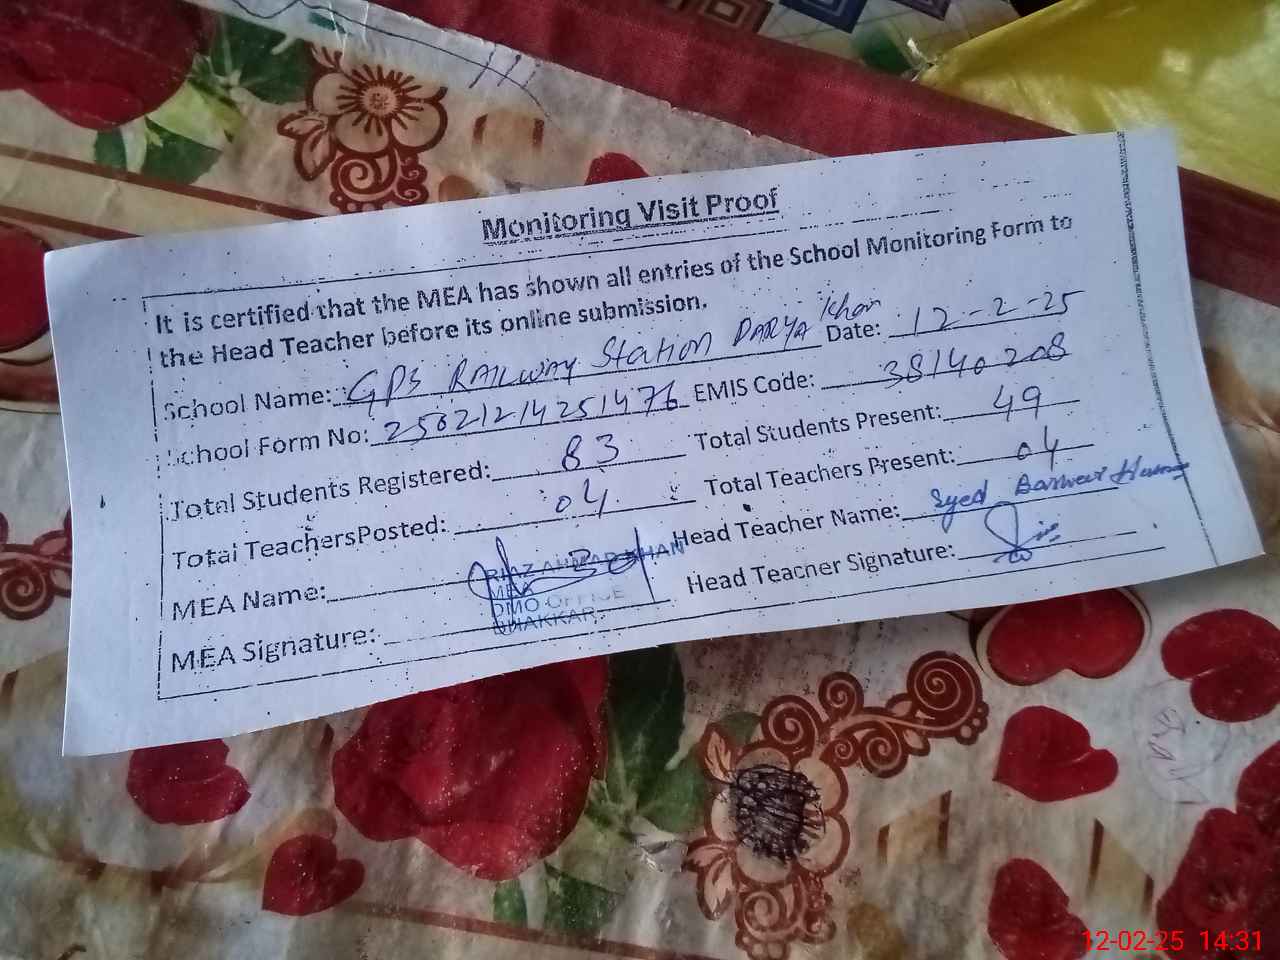 Monitoring Visit Proof
It is certified that the MEA has shown all entries of the School Monitoring Form to
the Head Teacher before its online submission.
School Name: GPS RAILWAY Station DARYA Khan Date: 12-2-25
School Form No: 25021214251476 EMIS Code: 38140208
Total Students Registered: 83 Total Students Present: 49
Total TeachersPosted: 04 Total Teachers Present: 04
MEA Name: RIAZ AHMAD KHAN Head Teacher Name: Syed
MEA
DMO OFFICE
BHAKKAR
MEA Signature: Head Teacher Signature:
12-02-25 14:31